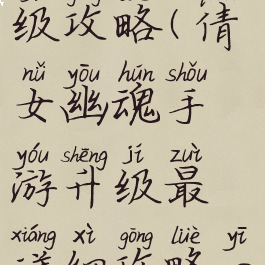 级攻略(倩
nǚ yōu hún shǒu
女幽魂手
yóu shēng jí zuì
游升级最
xiáng xì gōng lüè yī
详细攻略